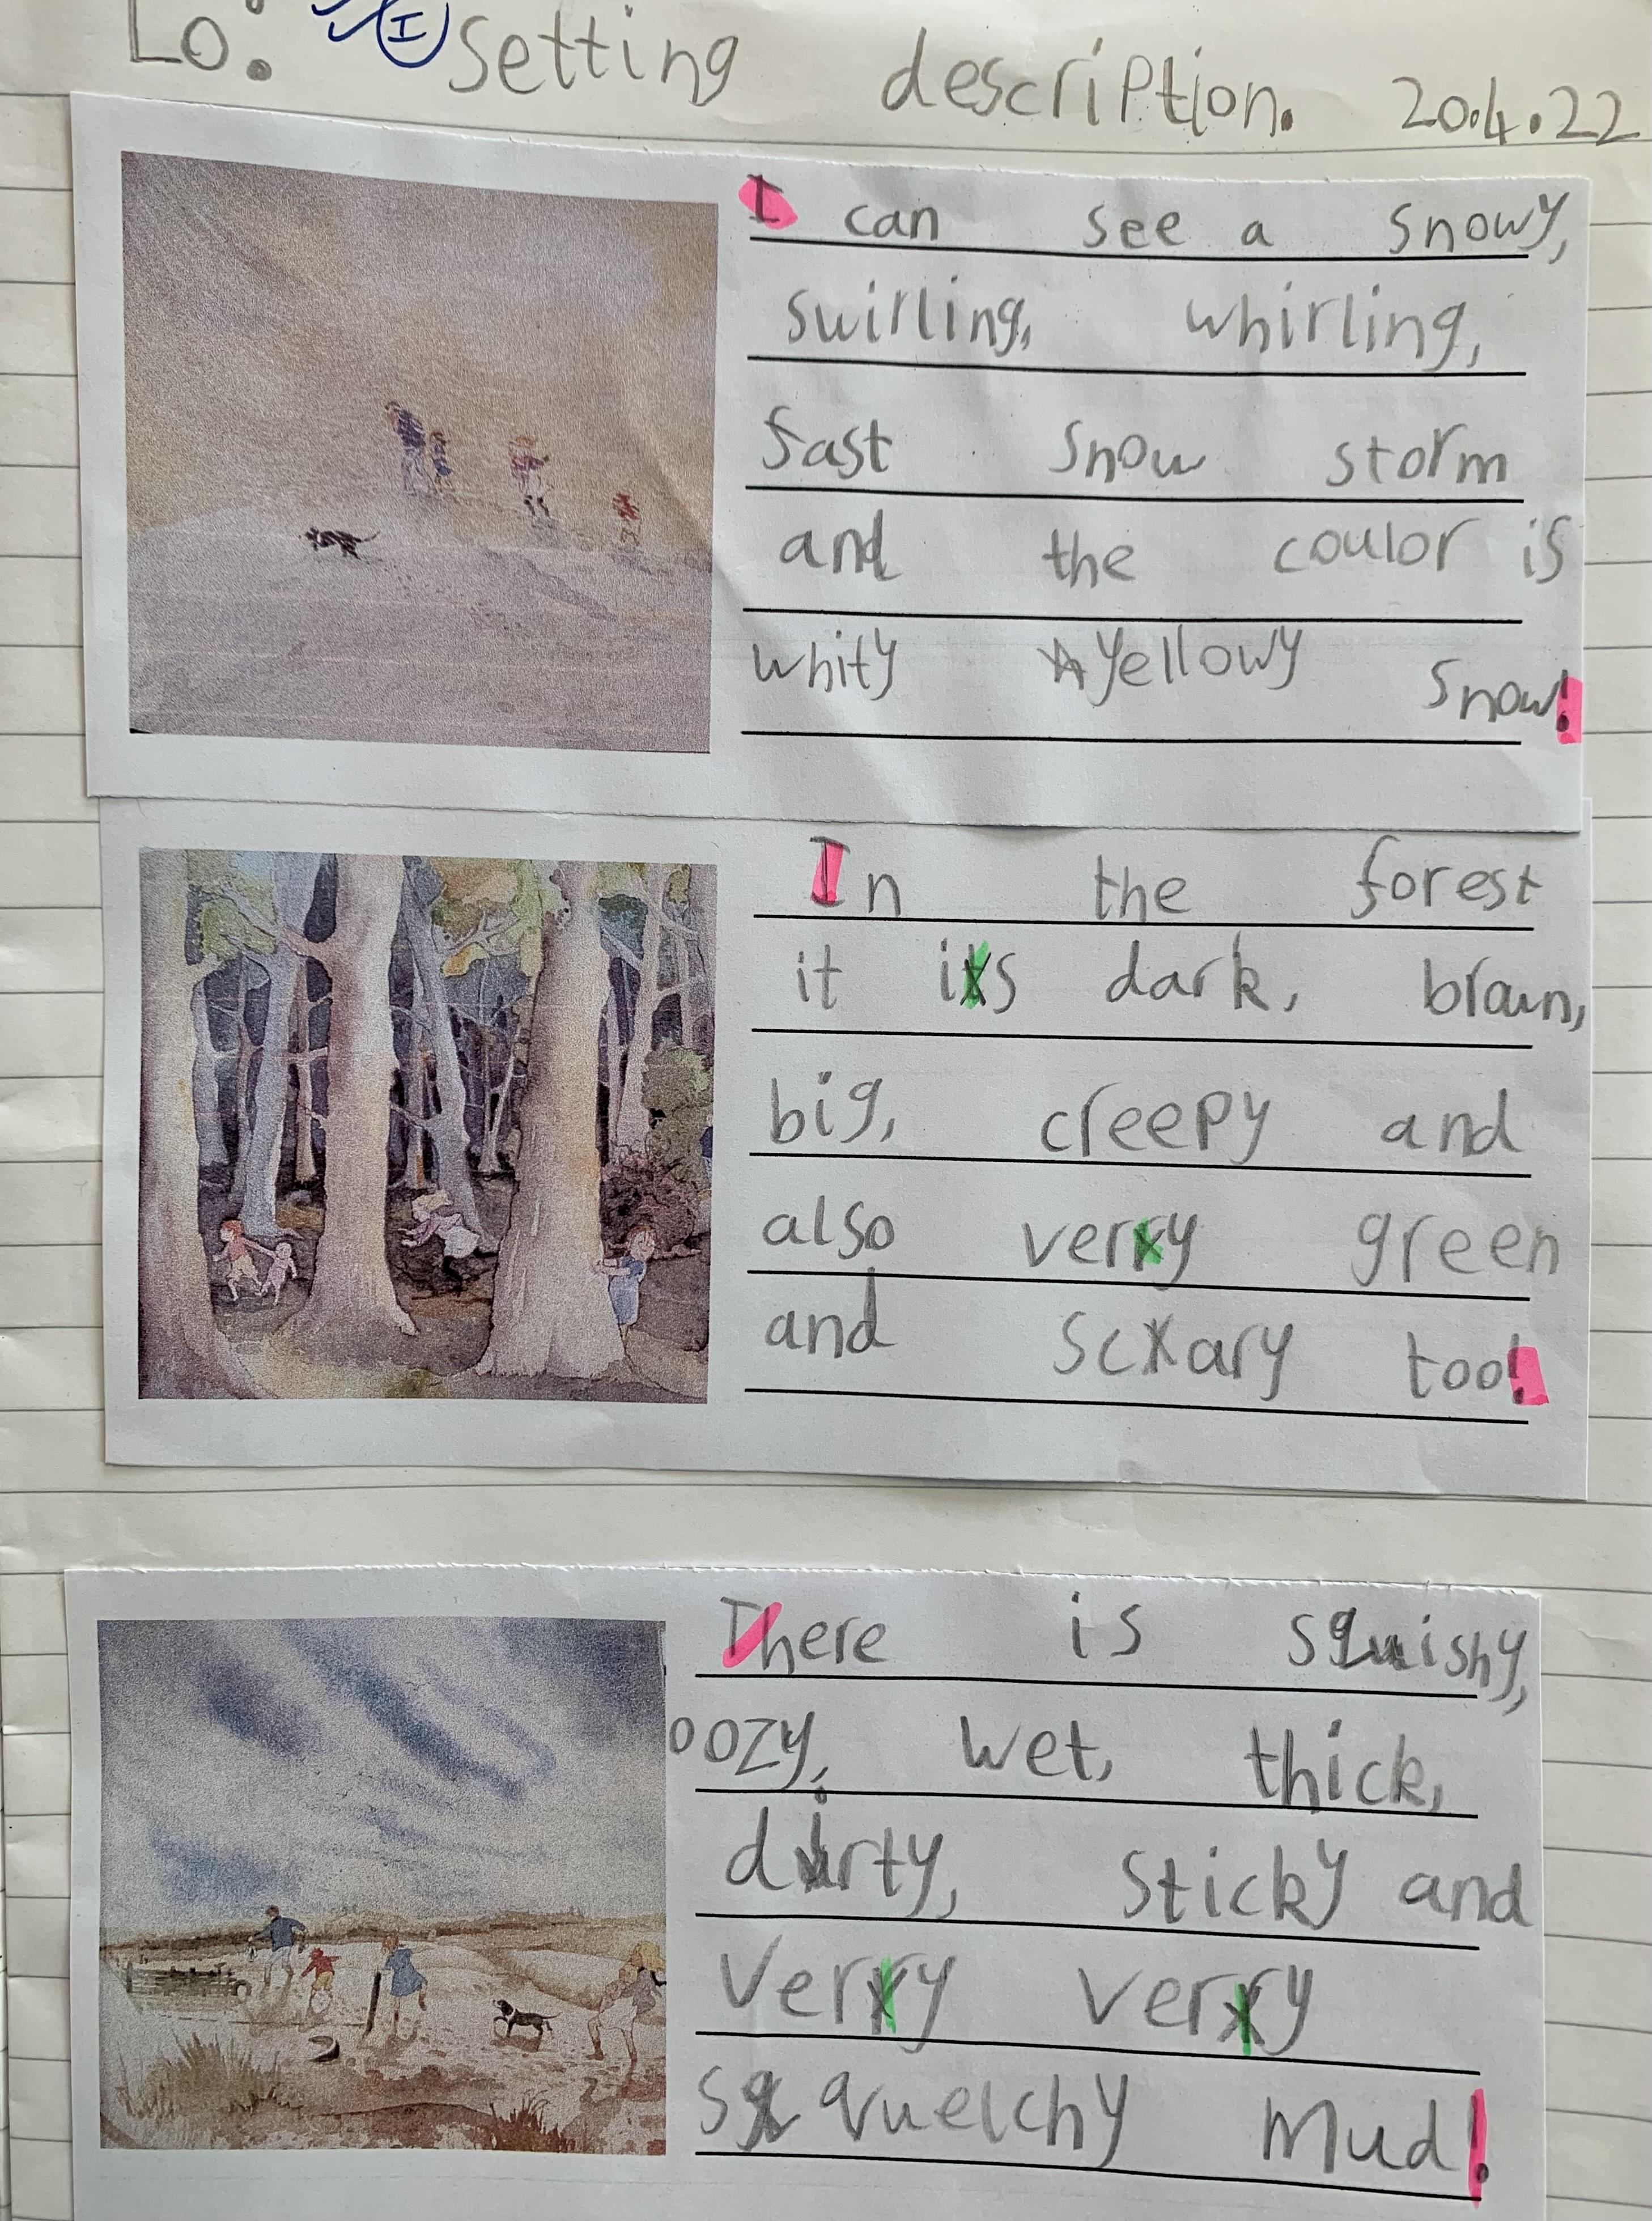 Lo: I setting description. 20.4.22
I can see a snowy,
swirling, whirling,
fast snow storm
and the coulor is
whity yellowy snow!
In the forest
it is dark, braun,
big, creepy and
also very green
and scary too!
There is squishy,
oozy, wet, thick,
dirty, sticky and
very very
squelchy mud!